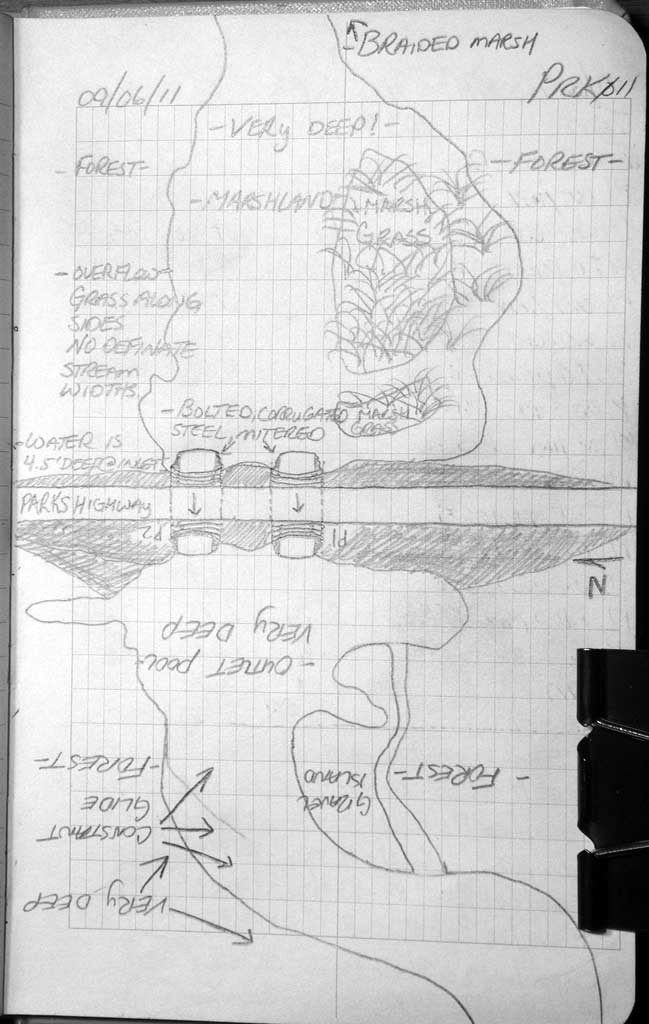 BRAIDED MARSH
09/06/11
PRK611
-VERY DEEP!-
- FOREST-
-FOREST-
-MARSHLAND
MARSH
GRASS
-OVERFLOW
GRASS ALONG
SIDES
NO DEFINATE
STREAM
WIDTHS
-BOLTED, CORRUGATED
STEEL, MITERED
MARSH
GRASS
-WATER IS
4.5' DEEP @ INLET
PARKS HIGHWAY
P2
P1
N
VERY DEEP
- OUTLET POOL-
-FOREST-
GRAVEL
ISLAND
- FOREST-
CONSTANT
GLIDE
VERY DEEP